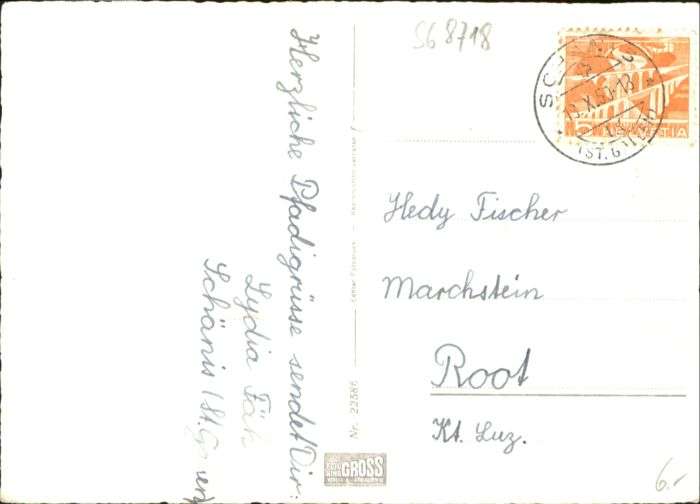 Herzliche Pfadigrüsse sendet Dir:
Lydia Fäh
Schänis (St. Gallen)
S68718
HELVETIA
Hedy Fischer
Marchstein
Root
Kt. Luz.
Nr. 22586
GROSS
6.-